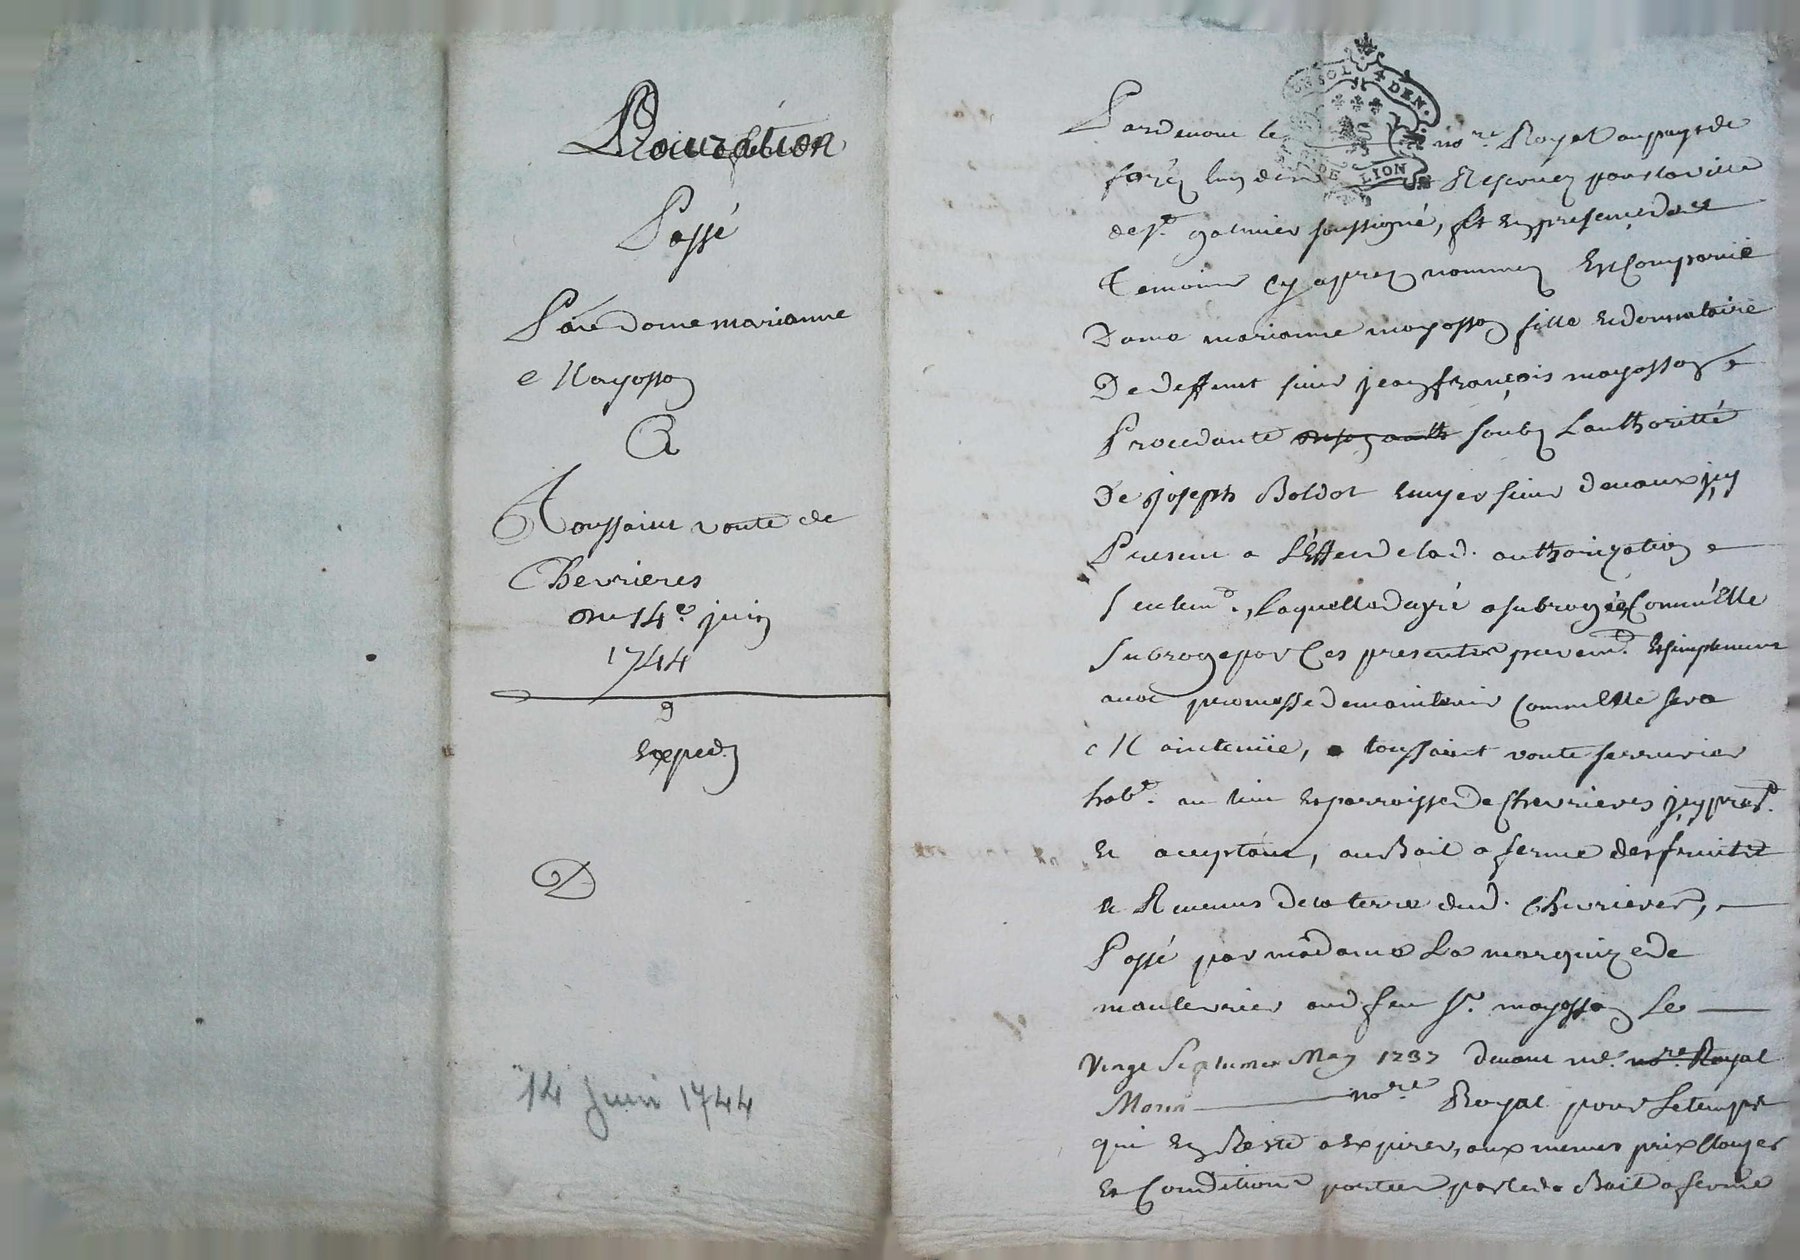 Procuration
Passé
Par dame marianne
Mayosson
A
Toussaint voute de
Chevrieres
Du 14.e juin
1744
9
Exped.
D
14 Juin 1744
UN SOL 4 DEN.
DE LION
Pardevant le no.re Royal au pays de
forez lun des Reservez pour la ville
de st. galmier soussigné, et en presence des
Temoins cy apres nommez Est Comparüe
Dame marianne mayosson fille et donnataire
De deffunt sieur jean françois mayosson
Procedante soubz Lauthoritté
De joseph Boldot ecuyer sieur devaux icy
Present a L'Effet de lad. authorization
seulem.t, Laquelle de gré a subrogé, Comm'Elle
subroge par Ces presentes purem.t Et simplement
avec promesse de maintenir Comm'Elle sera
Maintenüe, a toussaint voute serrurier
hab.t au lieu et parroisse de Chevrieres icy pres.t
et acceptant, au Bail a ferme des fruits
et Revenus de la terre dud. Chevrieres,
Passé par madame La marquize de
maulevrier aud feu sr. mayosson Le
Vingt Septieme May 1737 devant me. no.re Royal
Morin no.re Royal pour le temps
qui en Reste a expirer, aux memes prix Charges
et Conditions portées par led. Bail a ferme